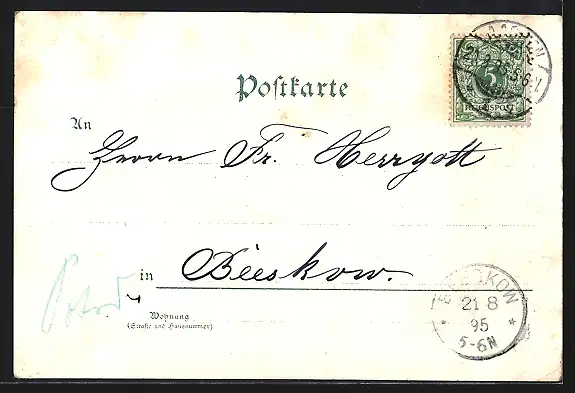 Postkarte
5
REICHSPOST
An
Herrn Fr. Herrgott
in Beeskow.
BEESKOW
21 8
95
5-6N
Wohnung
(Straße und Hausnummer)